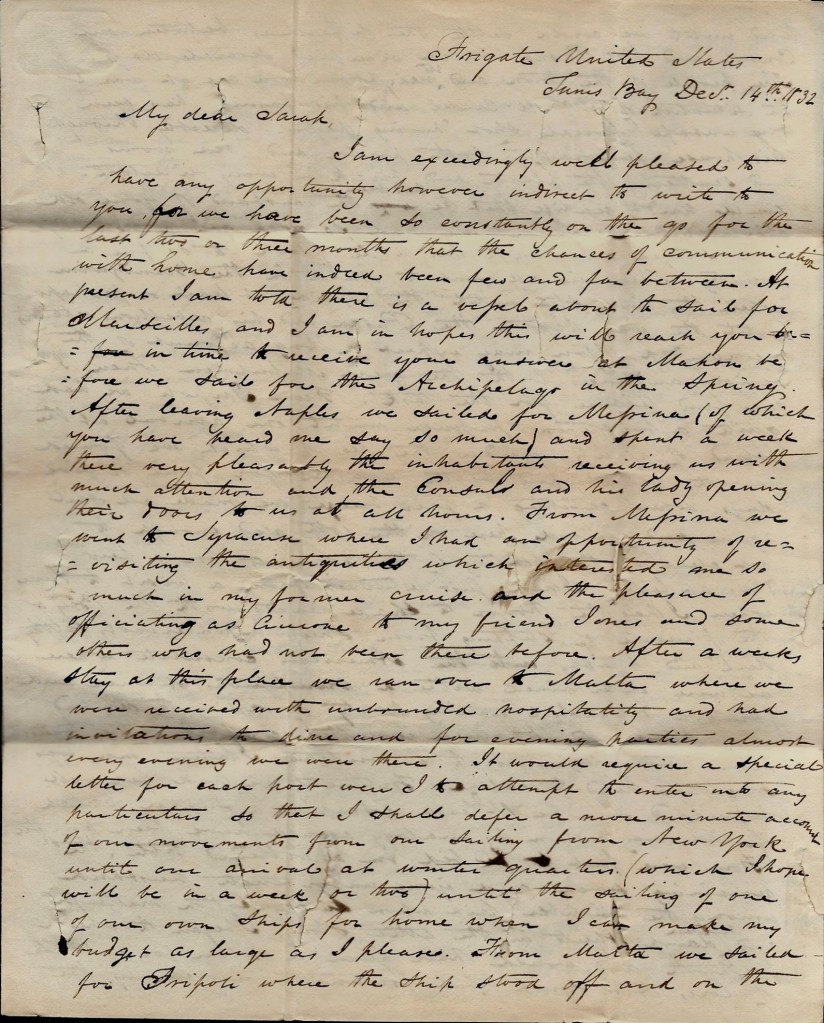 Frigate United States
Tunis Bay Decr. 14th. 1832
My dear Sarah,
I am exceedingly well pleased to
have any opportunity however indirect to write to
you, for we have been so constantly on the go for the
last two or three months that the chances of communication
with home have indeed been few and far between. At
present I am told there is a vessel about to sail for
Marseilles and I am in hopes this will reach you be=
= fore in time to receive your answer at Mahon be
= fore we sail for the Archipelago in the Spring.
After leaving Naples we sailed for Messina (of which
you have heard me say so much) and spent a week
there very pleasantly the inhabitants receiving us with
much attention and the Consul and his lady opening
their doors to us at all hours. From Messina we
went to Syracuse where I had an opportunity of re=
= visiting the antiquities which interested me so
much in my former cruise and the pleasure of
officiating as Cicerone to my friend Jones and some
others who had not been there before. After a weeks
stay at this place we ran over to Malta where we
were received with unbounded hospitality and had
invitations to dine and for evening parties almost
every evening we were there. It would require a special
letter for each port were I to attempt to enter into any
particulars so that I shall defer a more minute account
of our movements from our sailing from New York
until our arrival at winter quarters (which I hope
will be in a week or two) until the sailing of one
of our own ships for home when I can make my
budget as large as I please. From Malta we sailed
for Tripoli where the ship stood off and on the